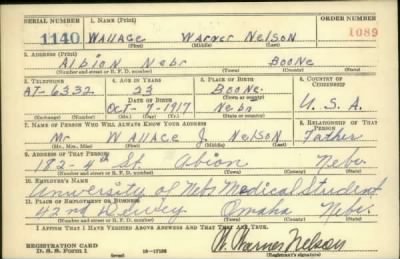 SERIAL NUMBER 1. NAME (Print) ORDER NUMBER
1140 WALLACE WARNER NELSON 1089
(First) (Middle) (Last)
2. ADDRESS (Print)
Albion Nebr Boone
(Number and street or R. F. D. number) (Town) (County) (State)
3. TELEPHONE 4. AGE IN YEARS 5. PLACE OF BIRTH 6. COUNTRY OF CITIZENSHIP
AT-6332 23 Boone
DATE OF BIRTH
Oct-9-1917 Nebr U.S.A.
(Exchange) (Number) (Mo.) (Day) (Yr.) (State or country)
7. NAME OF PERSON WHO WILL ALWAYS KNOW YOUR ADDRESS 8. RELATIONSHIP OF THAT PERSON
Mr WALLACE J. NELSON Father
(Mr., Mrs., Miss) (First) (Middle) (Last)
9. ADDRESS OF THAT PERSON
182-4th St Abion Nebr.
(Number and street or R. F. D. number) (Town) (County) (State)
10. EMPLOYER'S NAME
University of Nebr Medical Student
11. PLACE OF EMPLOYMENT OR BUSINESS
42nd Dewey Omaha Nebr.
(Number and street or R. F. D. number) (Town) (County) (State)
I AFFIRM THAT I HAVE VERIFIED ABOVE ANSWERS AND THAT THEY ARE TRUE.
REGISTRATION CARD
D. S. S. Form 1 16-17105 W. Warner Nelson
(over) (Registrant's signature)